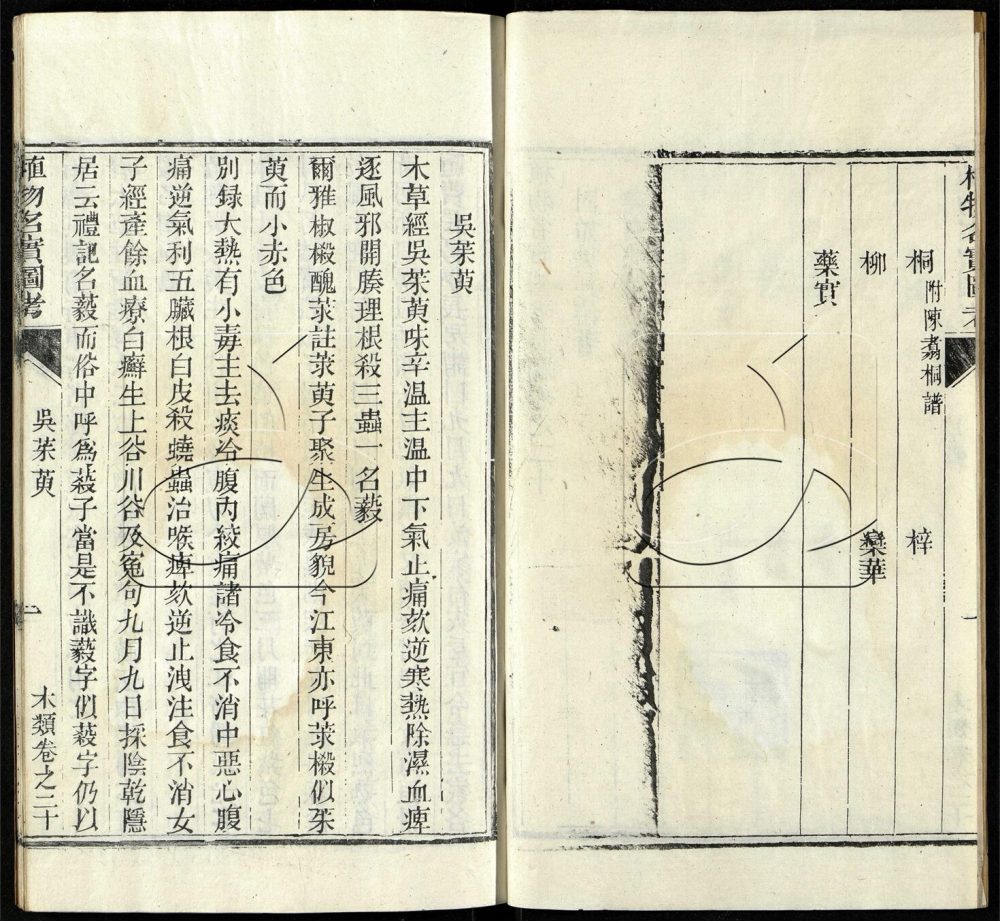 植物名實圖考
桐附陳翥桐譜　梓
柳　欒華
藥實
一
吳茱萸
木草經吳茱萸味辛溫主溫中下氣止痛欬逆寒熱除濕血痺
逐風邪開腠理根殺三蟲一名藙
爾雅椒樧醜莍註莍萸子聚生成房貌今江東亦呼莍樧似茱
萸而小赤色
別録大熱有小毒主去痰冷腹內絞痛諸冷食不消中惡心腹
痛逆氣利五臟根白皮殺蟯蟲治喉痺欬逆止洩注食不消女
子經產餘血療白癬生上谷川谷及冤句九月九日採陰乾隱
居云禮記名藙而俗中呼爲蔱子當是不識藙字似蔱字仍以
植物名實圖考　吳茱萸　一　木類卷之三十